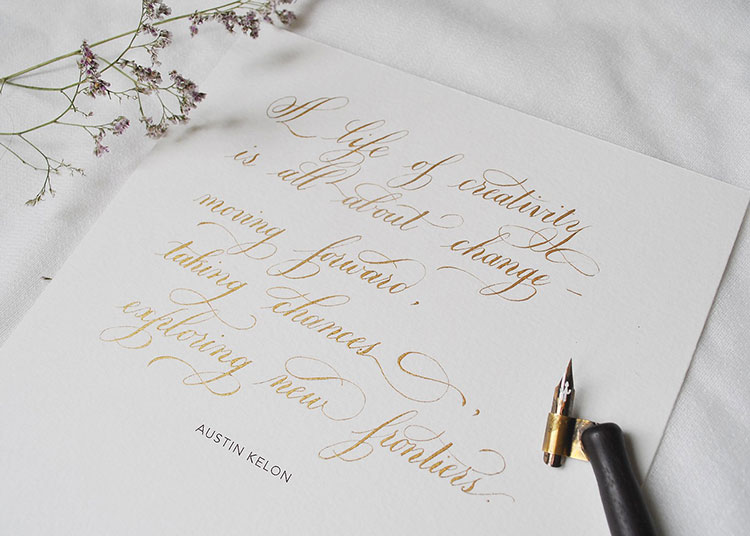 A life of creativity
is all about change -
moving forward,
taking chances,
exploring new frontiers.
AUSTIN KELON